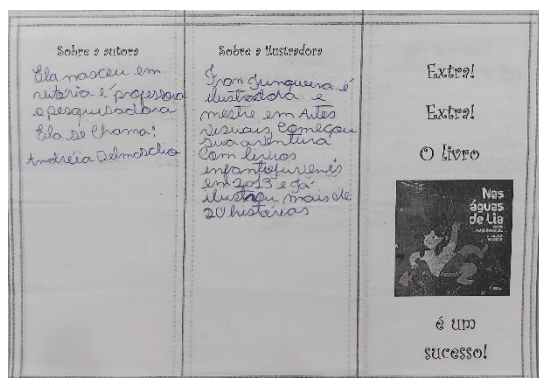 Sobre a autora
Ela nasceu em
vitória é professora
e pesquisadora
Ela se Chama:
Andréia Delmaschio
Sobre a ilustradora
Fran Junqueira é
ilustradora e
mestre em Artes
visuais. Começou
sua aventura
Com livros
infantojuvenis
em 2013 e já
ilustrou mais de
20 histórias
Extra!
Extra!
O livro
Nas
águas
de Lia
é um
sucesso!